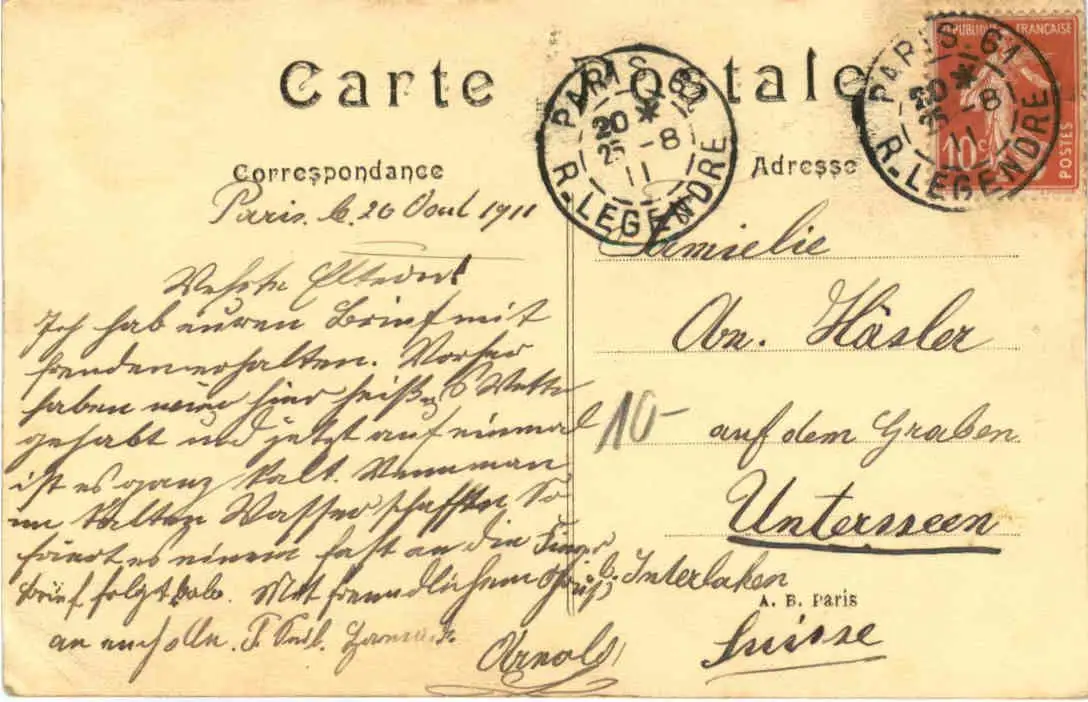 Carte Postale
Correspondance
Adresse
PARIS 61
20 *
25 - 8
11
R. LEGENDRE
PARIS 61
20 *
25 - 8
11
R. LEGENDRE
REPUBLIQUE FRANÇAISE
10c
POSTES
Paris. 26 Aout 1911
Werthe Eltern!
Ich hab euren Brief mit
freuden erhalten. Vorher
haben wir hier heißes Wetter
gehabt und jetzt auf einmal
ist es ganz kalt. Wenn man
im kalten Wasser schafft so
friert es einem fast an die Finger
Brief folgt bald. Mit freundlichem Gruß
an euch alle.
Arnold
Familie
Abr. Häsler
10-
auf dem Graben
Unterseen
b. Interlaken
A. B. Paris
Suisse